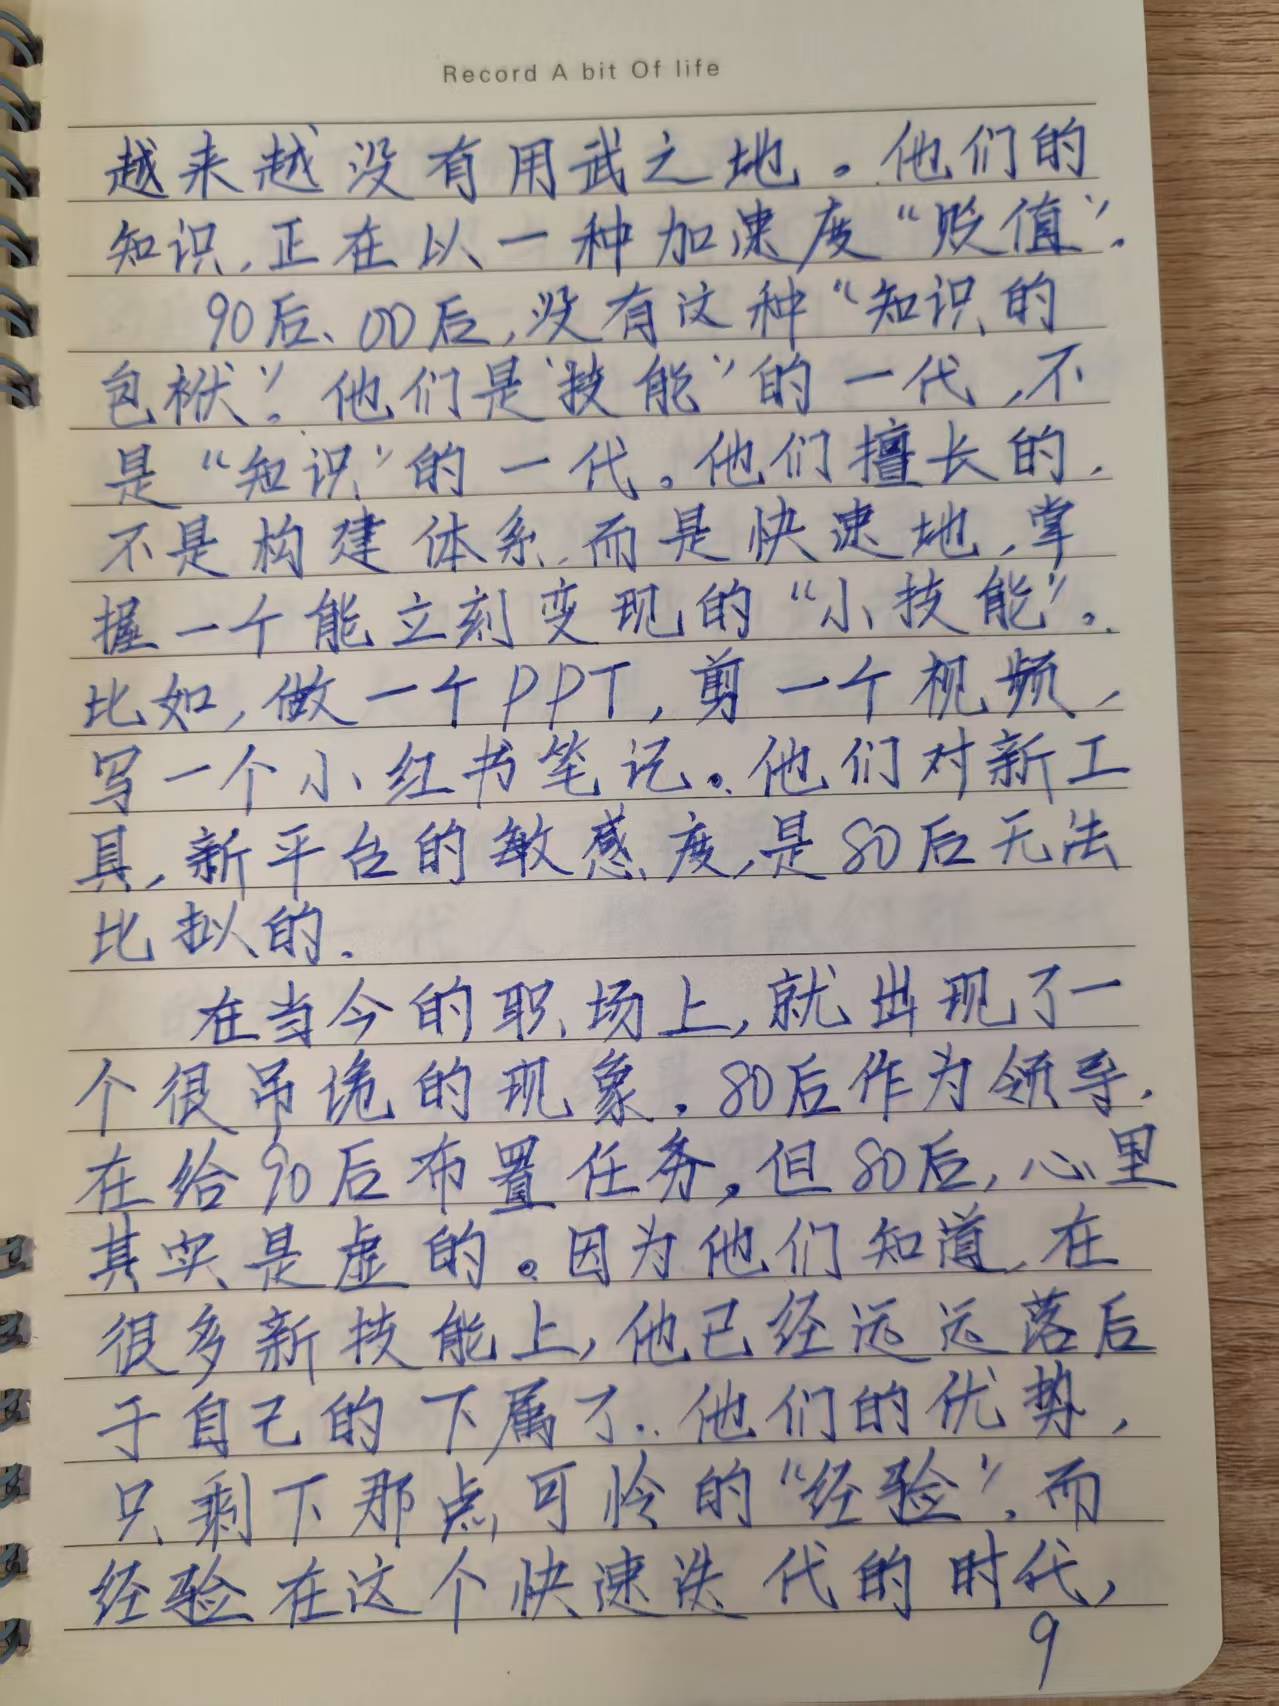 Record A bit Of life
越来越没有用武之地。他们的
知识,正在以一种加速度“贬值”.
90后、00后,没有这种“知识的
包袱”.他们是“技能”的一代,不
是“知识”的一代。他们擅长的,
不是构建体系,而是快速地,掌
握一个能立刻变现的“小技能”。
比如,做一个PPT,剪一个视频,
写一个小红书笔记。他们对新工
具,新平台的敏感度,是80后无法
比拟的.
在当今的职场上,就出现了一
个很吊诡的现象.80后作为领导.
在给90后布置任务,但80后,心里
其实是虚的。因为他们知道,在
很多新技能上,他已经远远落后
于自己的下属了.他们的优势,
只剩下那点可怜的“经验”,而
经验在这个快速迭代的时代,
9